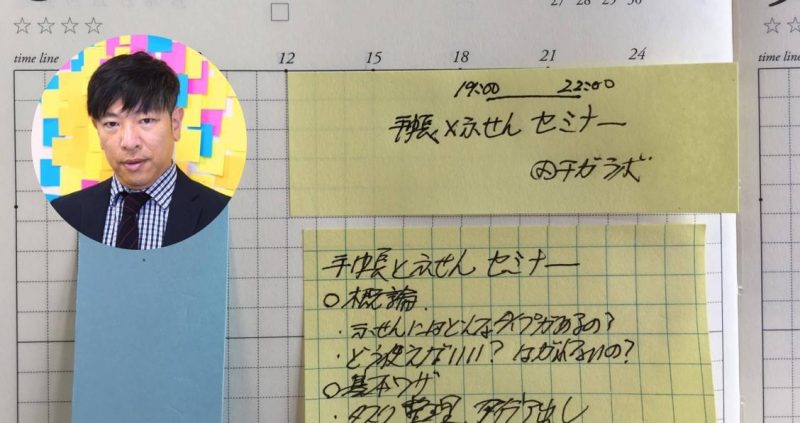 27 28 29 30
☆☆☆☆
time line 12 15 18 21 24
time line
19:00 22:00
手帳×ふせん セミナー
@チガラボ
手帳とふせん セミナー
○概論
・ふせんにはどんなタイプがあるの?
・どう使えばいい? はがれないの?
○基本ワザ
・タスク整理、アイデア出し